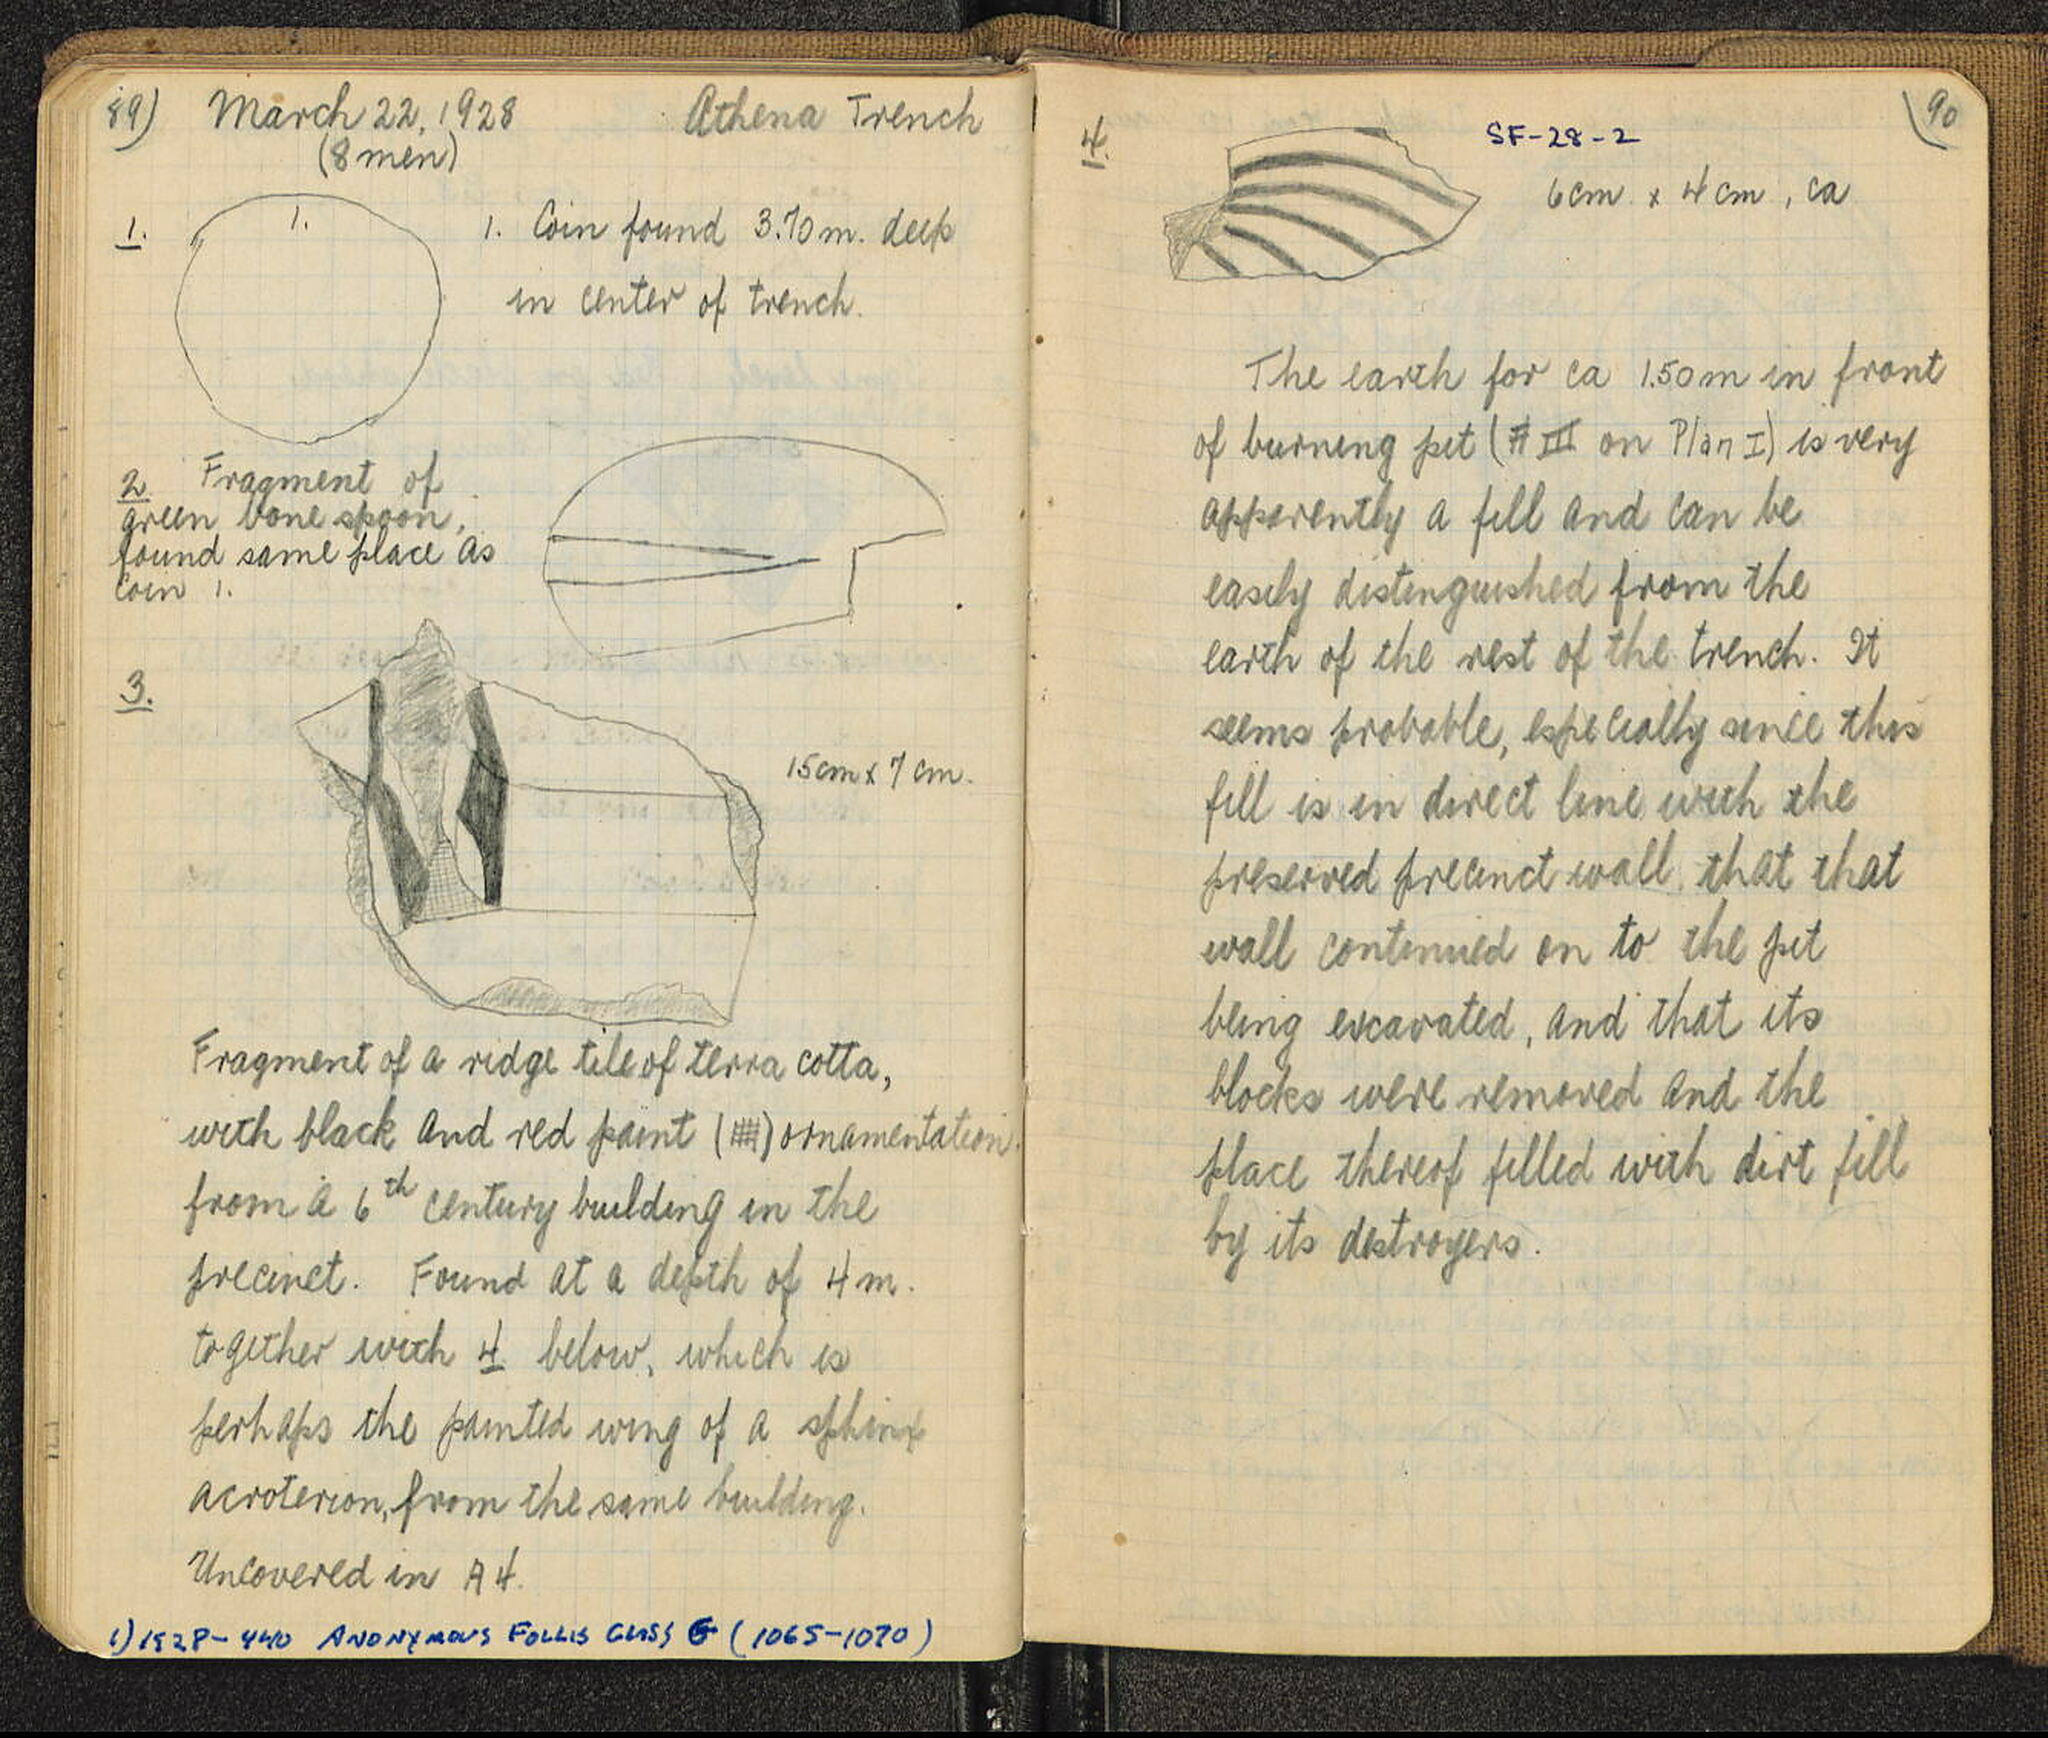 89) March 22, 1928 Athena Trench
(8 men)
1. 1. 1. Coin found 3.70 m. deep
in center of trench.
2 Fragment of
green bone spoon,
found same place as
coin 1.
3.
15cm x 7 cm.
Fragment of a ridge tile of terra cotta,
with black and red paint (卌) ornamentation
from a 6th century building in the
precinct. Found at a depth of 4 m.
together with 4 below, which is
perhaps the painted wing of a sphinx
acroterion, from the same building.
Uncovered in A4.
1) 1928-440 ANONYMOUS FOLLIS CLASS G (1065-1070)
90
4. SF-28-2
6cm x 4cm, ca
The earth for ca 1.50m in front
of burning pit (# III on Plan I) is very
apparently a fill and can be
easily distinguished from the
earth of the rest of the trench. It
seems probable, especially since this
fill is in direct line with the
preserved precinct wall that that
wall continued on to the pit
being excavated, and that its
blocks were removed and the
place thereof filled with dirt fill
by its destroyers.